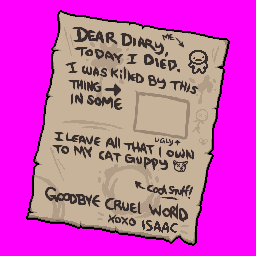 DEAR DIARY, ME
TODAY I DIED.
I WAS KILLED BY THIS
THING
IN SOME
UGLY
I LEAVE ALL THAT I OWN
TO MY CAT GUPPY
COOL STUFF!
GOODBYE CRUEL WORLD
XOXO ISAAC